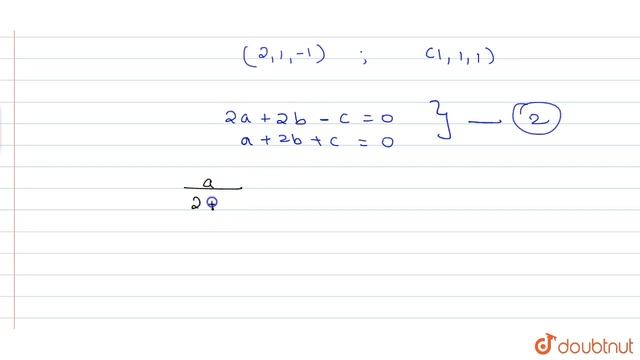 (2,1,-1) ; (1,1,1)
2a + 2b - c = 0
a + 2b + c = 0 } — 2
a
2 +
doubtnut